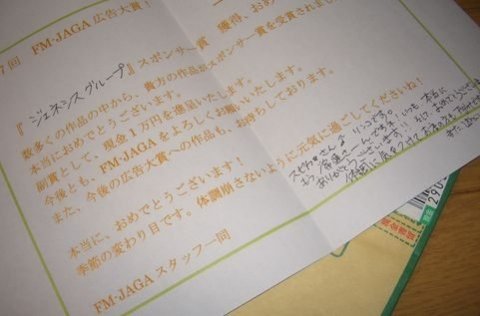 7回 FM-JAGA 広告大賞!
『ジェネシスグループ』スポンサー賞 獲得、おめ
数多くの作品の中から、貴方の作品がスポンサー賞を受賞されまし
本当におめでとうございます。
副賞として、現金1万円を進呈いたします。
今後とも、FM-JAGAをよろしくお願いいたします。
また、今後の広告大賞への作品も、お待ちしております。
本当に、おめでとうございます!
季節の変わり目です。体調崩さないように元気に過ごしてくださいね!
FM-JAGA スタッフ一同
リンコです。
いつも 本当に
ありがとうございます!
290